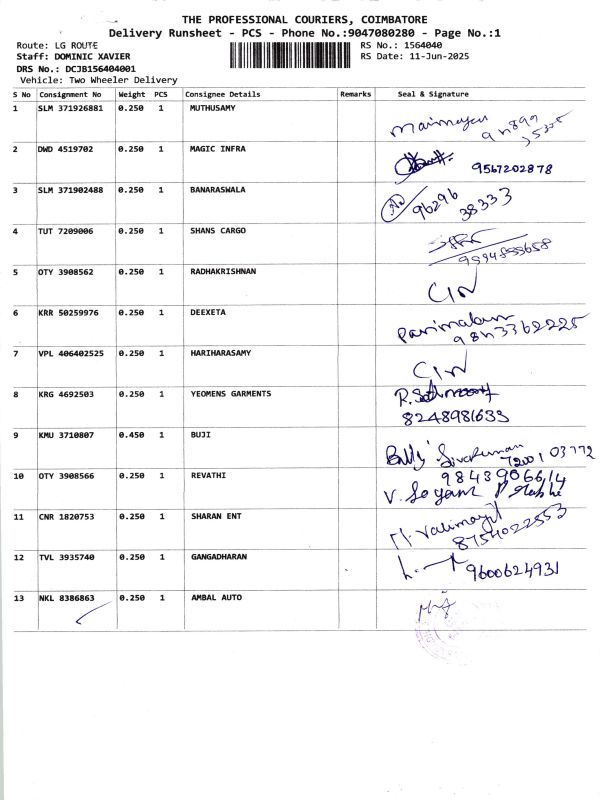 THE PROFESSIONAL COURIERS, COIMBATORE
Delivery Runsheet - PCS - Phone No.:9047080280 - Page No.:1
Route: LG ROUTE RS No.: 1564040
Staff: DOMINIC XAVIER RS Date: 11-Jun-2025
DRS No.: DCJB156404001
Vehicle: Two Wheeler Delivery
S No Consignment No Weight PCS Consignee Details Remarks Seal & Signature
1 SLM 371926881 0.250 1 MUTHUSAMY
2 DWD 4519702 0.250 1 MAGIC INFRA 9567202878
3 SLM 371902488 0.250 1 BANARASWALA 96296
38333
4 TUT 7209006 0.250 1 SHANS CARGO
5 OTY 3908562 0.250 1 RADHAKRISHNAN
6 KRR 50259976 0.250 1 DEEXETA
7 VPL 406402525 0.250 1 HARIHARASAMY
8 KRG 4692503 0.250 1 YEOMENS GARMENTS
8248981633
9 KMU 3710807 0.450 1 BUJI
72001 03772
10 OTY 3908566 0.250 1 REVATHI 9843906614
11 CNR 1820753 0.250 1 SHARAN ENT
8754022553
12 TVL 3935740 0.250 1 GANGADHARAN 9600624931
13 NKL 8386863 0.250 1 AMBAL AUTO